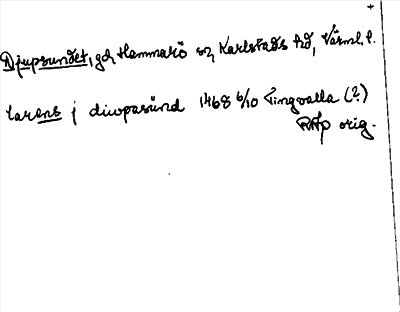 +
Djupsundet, gd Hammarö sn, Karlstads hd, Värml. l.
larens j diwpasünd 1468 6/10 Tingvalla (?)
RAp orig.